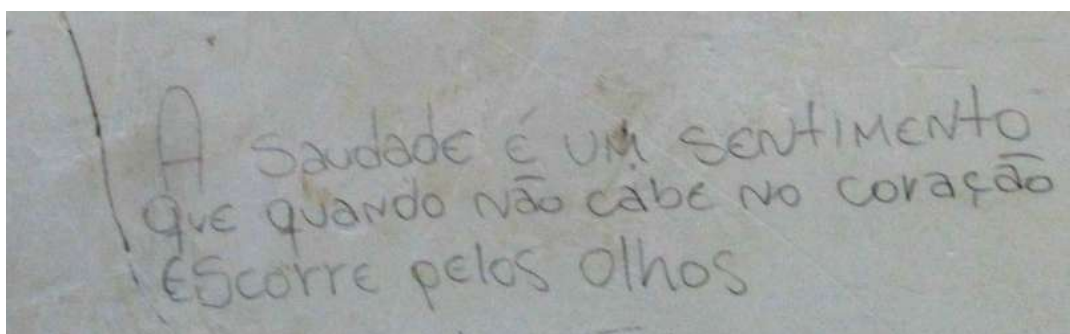 A saudade é um sentimento
que quando não cabe no coração
escorre pelos olhos